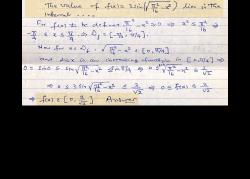 The value of f(x) = 3 sin(√(π²/16 - x²)) lies in the
interval ....
For f(x) to be defined π²/16 - x² ≥ 0 ⇒ x² ≤ π²/16
-π/4 ≤ x ≤ π/4 ⇒ Df = [-π/4, π/4]
Now for x ∈ Df, √(π²/16 - x²) ∈ [0, π/4]
and sin x is an increasing function in [0, π/4] ⇒
0 = sin 0 ≤ sin √(π²/16 - x²) ≤ sin π/4 ⇒ 0 ≤ √(π²/16 - x²) ≤ 1/√2
⇒ 0 ≤ 3 sin √(π²/16 - x²) ≤ 3/√2 ⇒ 0 ≤ f(x) ≤ 3/√2
⇒ f(x) ∈ [0, 3/√2] Answer